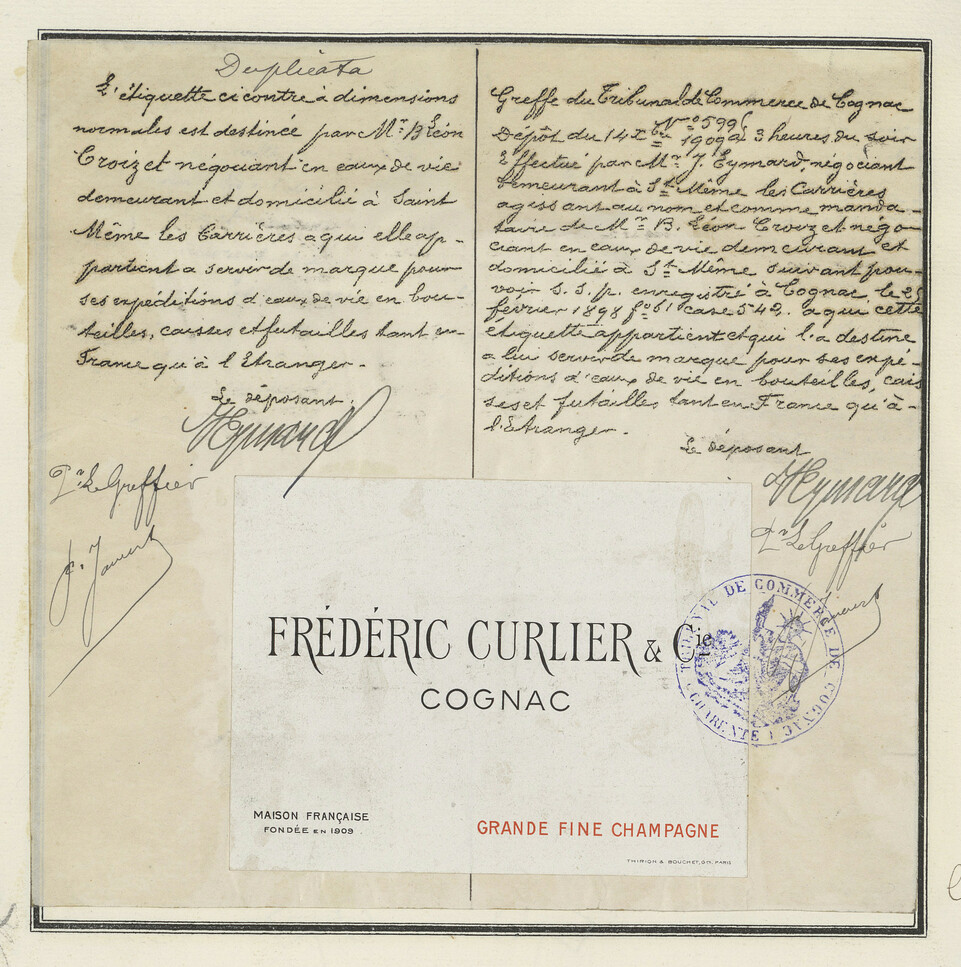 Duplicata
L'étiquette ci contre à dimensions
normales est destinée par Mr. B. Léon
Croizet négociant en eaux de vie
demeurant et domicilié à Saint
Même les Carrières a qui elle ap-
partient a servir de marque pour
ses expéditions d'eaux de vie en bou-
teilles, caisses et futailles tant en
France qu'à l'Etranger.
Le déposant.
Pr Le Greffier
Greffe du Tribunal de Commerce de Cognac
No 599
Dépôt du 14 Xbre 1909 à 3 heures du soir
Effectué par Mr. J. Eymard, négociant
demeurant à St Même les Carrières
agissant au nom et comme manda-
taire de Mr B. Léon Croizet négo-
ciant en eaux de vie demeurant et
domicilié à St Même suivant pou-
voir s. s. p. enregistré à Cognac, le 25
février 1898 fo 61 case 542. a qui cette
etiquette appartient et qui l'a destine
a lui servir de marque pour ses expé-
ditions d'eaux de vie en bouteilles, cais
ses et futailles tant en France qu'à
l'Etranger.
Le déposant
Pr Le Greffier
FRÉDÉRIC CURLIER & Cie
COGNAC
MAISON FRANÇAISE
FONDÉE EN 1909
GRANDE FINE CHAMPAGNE
THIRION & BOUCHET, PARIS
TRIBUNAL DE COMMERCE DE COGNAC
(CHARENTE)